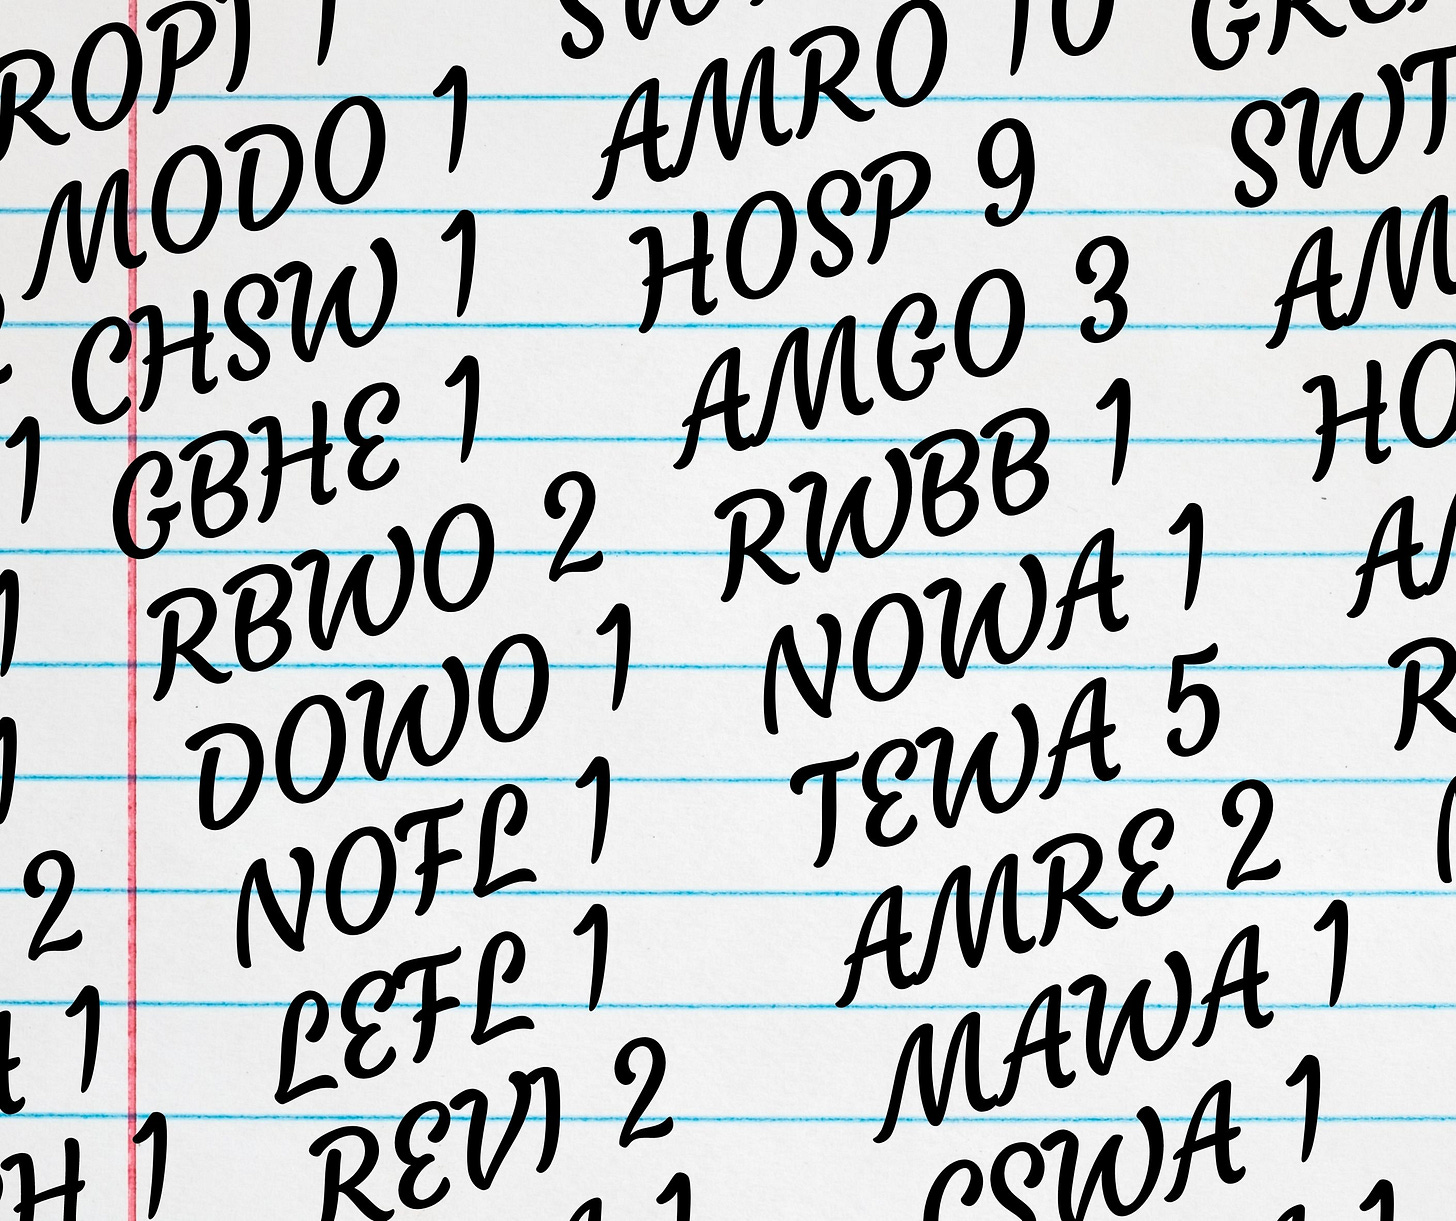 MODO 1
CHSW 1
GBHE 1
RBWO 2
DOWO 1
NOFL 1
LEFL 1
REVI 2
AMRO 10
HOSP 9
AMGO 3
RWBB 1
NOWA 1
TEWA 5
AMRE 2
MAWA 1
CSWA 1